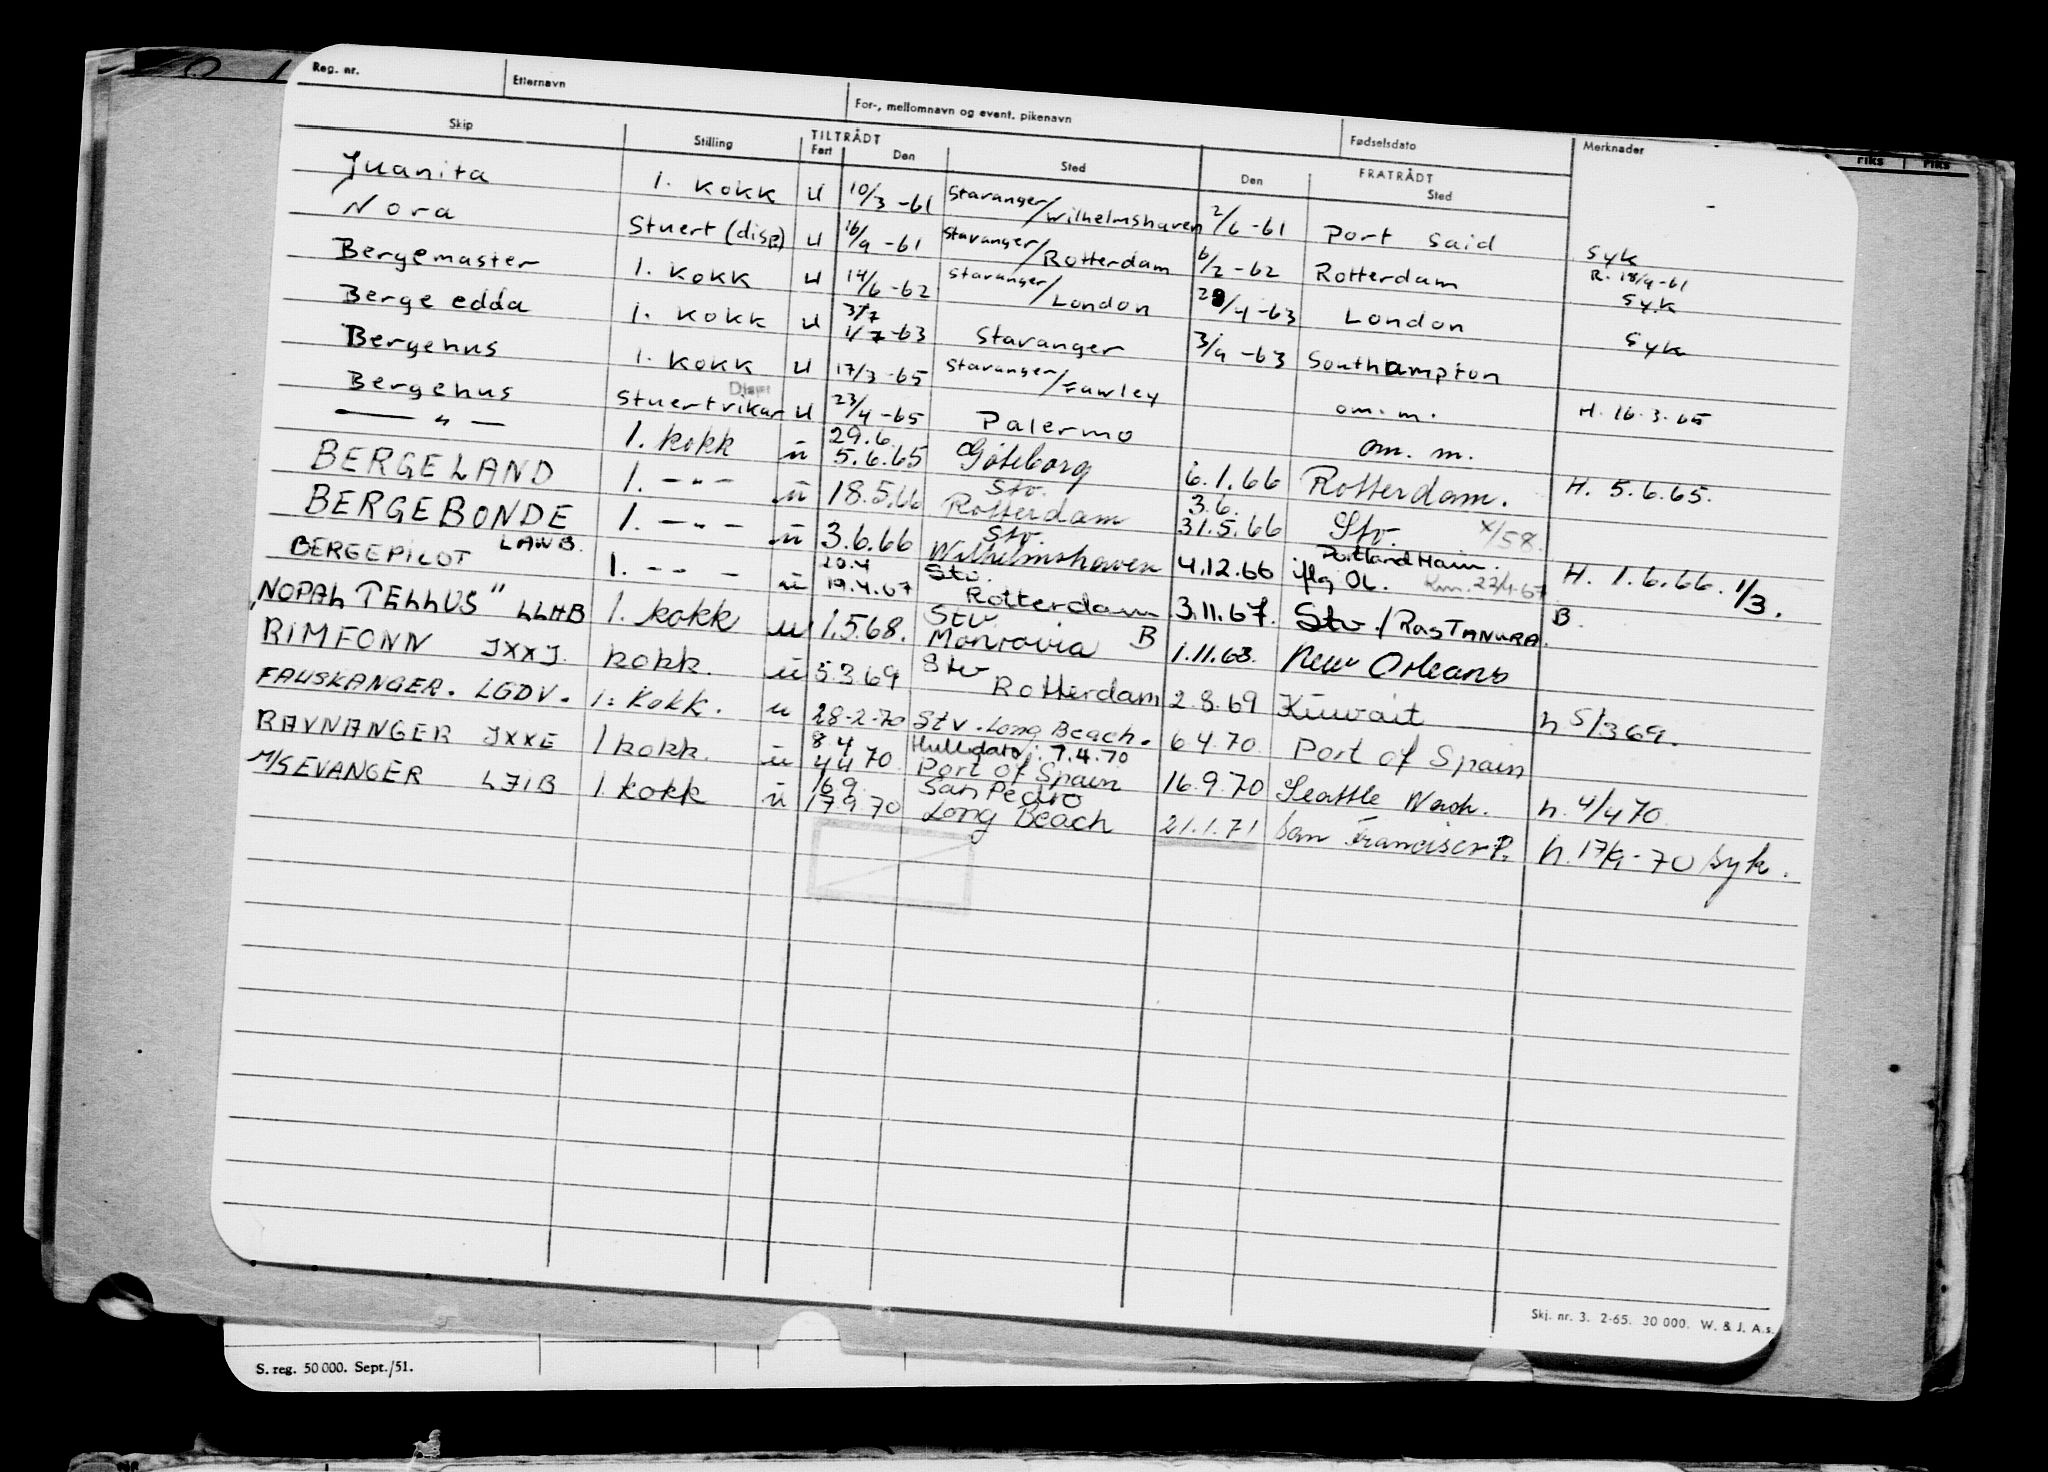 Reg. nr. Etternavn For-, mellomnavn og event. pikenavn Fødselsdato Merknader
Skip Stilling TILTRÅDT Fart Den Sted Den FRATRÅDT Sted
riks riks
Juanita 1. kokk U 10/3 -61 Stavanger/Wilhelmshaven 2/6 -61 Port Said Syk
Nora Stuert (disp) U 16/9 -61 Stavanger/Rotterdam 6/2 -62 Rotterdam R. 18/9-61 Syk
Bergemaster 1. kokk U 14/6 -62 Stavanger/London /4 -63 London Syk
Berge edda 1. kokk U 3/7 1/7 -63 Stavanger 3/9 -63 Southampton
Bergehus 1. kokk U 17/3 -65 Stavanger/Fawley om. m. H. 16.3.65
Bergehus Stuertvikar Disp U 23/4 -65 Palermo om. m.
— " — 1. kokk u 29.6. 5.6.65 Göteborg 6.1.66 Rotterdam. H. 5.6.65.
BERGELAND 1. — " — u 18.5.66 Stv. Rotterdam 3.6. 31.5.66 Stv. x/58.
BERGEBONDE LAWB. 1. — " — u 3.6.66 Stv. Wilhelmshaven 4.12.66 Portland Hain. flg Ol. H. 1.6.66. 1/3.
BERGEPILOT 1. — " — u 20.4 19.4.67 Stv. Rotterdam 3.11.67. Stv. / Ras TANURA. B.
„NOPAL TELLUS" LLHB 1. kokk u 1.5.68. Stv Monrovia B 1.11.68. New Orleans
RIMFONN JXXJ. kokk. u 5.3.69 Stv Rotterdam 2.8.69 Kuwait h 5/3 69.
FAUSKANGER. LGDV. 1: Kokk. u 28-2-70 Stv. Long Beach. 6 4.70. Port of Spain
RAVNANGER JXXE 1 kokk. u 8.4 4.4 70 Hulldato: 7.4.70 Port of Spain 16.9.70 Seattle Wash. h. 4/4 70.
M/S EVANGER LJIB 1. kokk u 16 9. 17 9 70 San Pedro Long Beach 21.1.71 San Francisco P. h. 17/9-70 syk.
Skj. nr. 3. 2-65. 30 000. W. & J. A.s.
S. reg. 50 000. Sept./51.